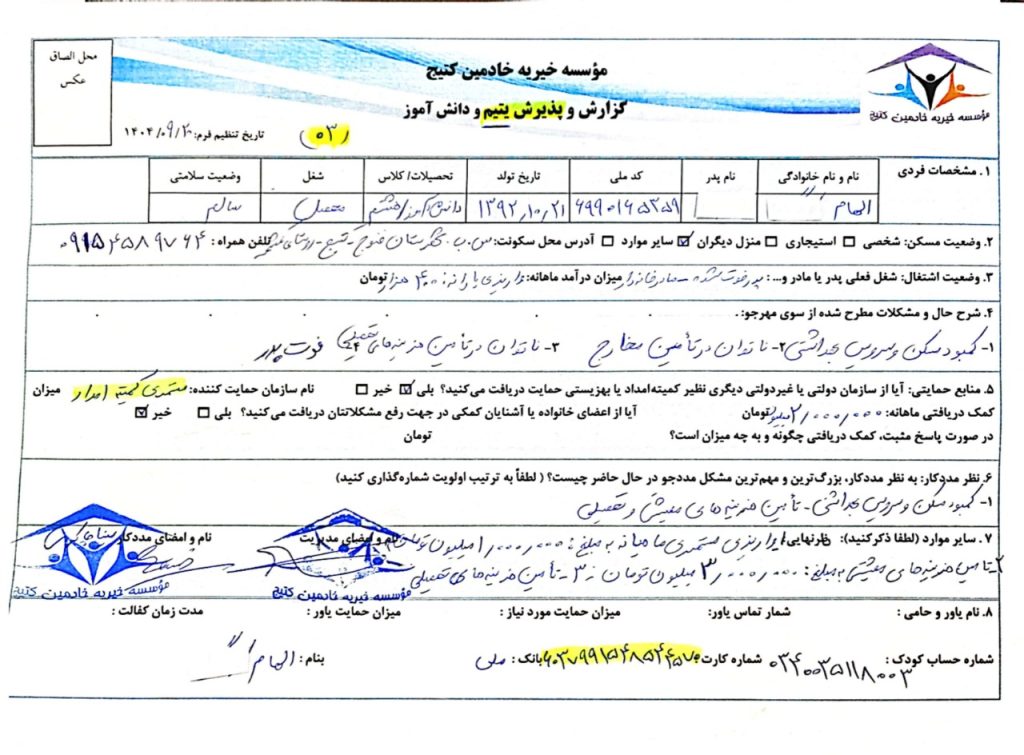 محل الصاق
عکس
مؤسسه خیریه خادمین کتیج
گزارش و پذیرش یتیم و دانش آموز
(۰۳)
تاریخ تنظیم فرم: ۱۴۰۴/۰۹/۲۰
مؤسسه خیریه خادمین کتیج
۱. مشخصات فردی
نام و نام خانوادگی نام پدر کد ملی تاریخ تولد تحصیلات/ کلاس شغل وضعیت سلامتی
الهام ۱۳۹۲,۱۰,۲۱ دانش آموز/هشتم محصل سالم
۲. وضعیت مسکن: شخصی ☐ استیجاری ☐ منزل دیگران ☑ سایر موارد ☐ آدرس محل سکونت: س.ب. شهرستان فنوج - کتیج - روستای تلفن همراه: ۰۹۱۵۴۵۸۹۷۶۴
۳. وضعیت اشتغال: شغل فعلی پدر یا مادر و...: پدر فوت شده - مادر خانه‌دار میزان درآمد ماهانه: واریزی یارانه: ۴۰۰ هزار تومان
۴. شرح حال و مشکلات مطرح شده از سوی مهرجو:
۱- کمبود مسکن و سرویس بهداشتی ۲- ناتوان در تأمین مخارج ۳- ناتوان در تأمین هزینه های تحصیلی ۴- فوت پدر
۵. منابع حمایتی: آیا از سازمان دولتی یا غیردولتی دیگری نظیر کمیته‌امداد یا بهزیستی حمایت دریافت می‌کنید؟ بلی ☑ خیر ☐ نام سازمان حمایت کننده: مستمری کمیته امداد میزان
کمک دریافتی ماهانه: ۲/۰۰۰/۰۰۰ میلیون تومان آیا از اعضای خانواده یا آشنایان کمکی در جهت رفع مشکلاتتان دریافت می‌کنید؟ بلی ☐ خیر ☑
در صورت پاسخ مثبت، کمک دریافتی چگونه و به چه میزان است؟ تومان
۶. نظر مددکار: به نظر مددکار، بزرگ‌ترین و مهم‌ترین مشکل مددجو در حال حاضر چیست؟ ( لطفاً به ترتیب اولویت شماره‌گذاری کنید)
۱- کمبود مسکن و سرویس بهداشتی - تأمین هزینه های معیشتی و تحصیلی
۷. سایر موارد (لطفا ذکرکنید): نظرنهایی: واریزی مستمری ماهیانه به مبلغ: ۱/۰۰۰/۰۰۰ میلیون تومان نام و امضای مدیریت نام و امضای مددکار
۲- تامین هزینه های معیشتی به مبلغ: ۳/۰۰۰/۰۰۰ میلیون تومان ۳- تأمین هزینه های تحصیلی
مؤسسه خیریه خادمین کتیج
مؤسسه خیریه خادمین کتیج
۸. نام یاور و حامی: شمار تماس یاور: میزان حمایت مورد نیاز: میزان حمایت یاور: مدت زمان کفالت:
شماره حساب کودک: ۰۳۴۰۰۳۵۱۱۸۰۰۳ شماره کارت: بانک: ملی بنام: الهام